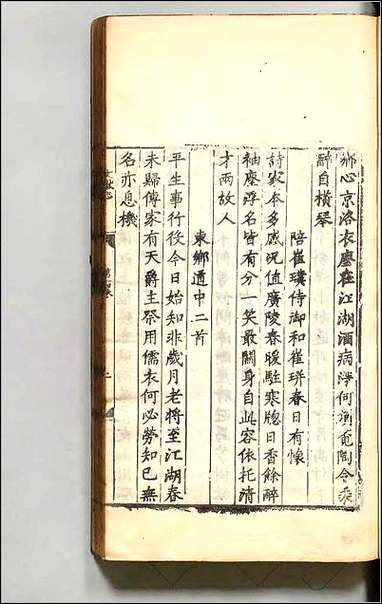 鄉心京洛衣塵在江湖酒病浮何須
陶令
醉自橫琴
陪崔璞侍御和崔珙春日有懷
詩家本多感況值廣陵春暖駐寒牕日香餘醉
袖塵浮名皆有分一笑最關身自此容依托清
才兩故人
東鄉道中二首
平生事行役今日始知非歲月老將至江湖春
未歸傳家有天爵主祭用儒衣何必勞知已無
名亦息機